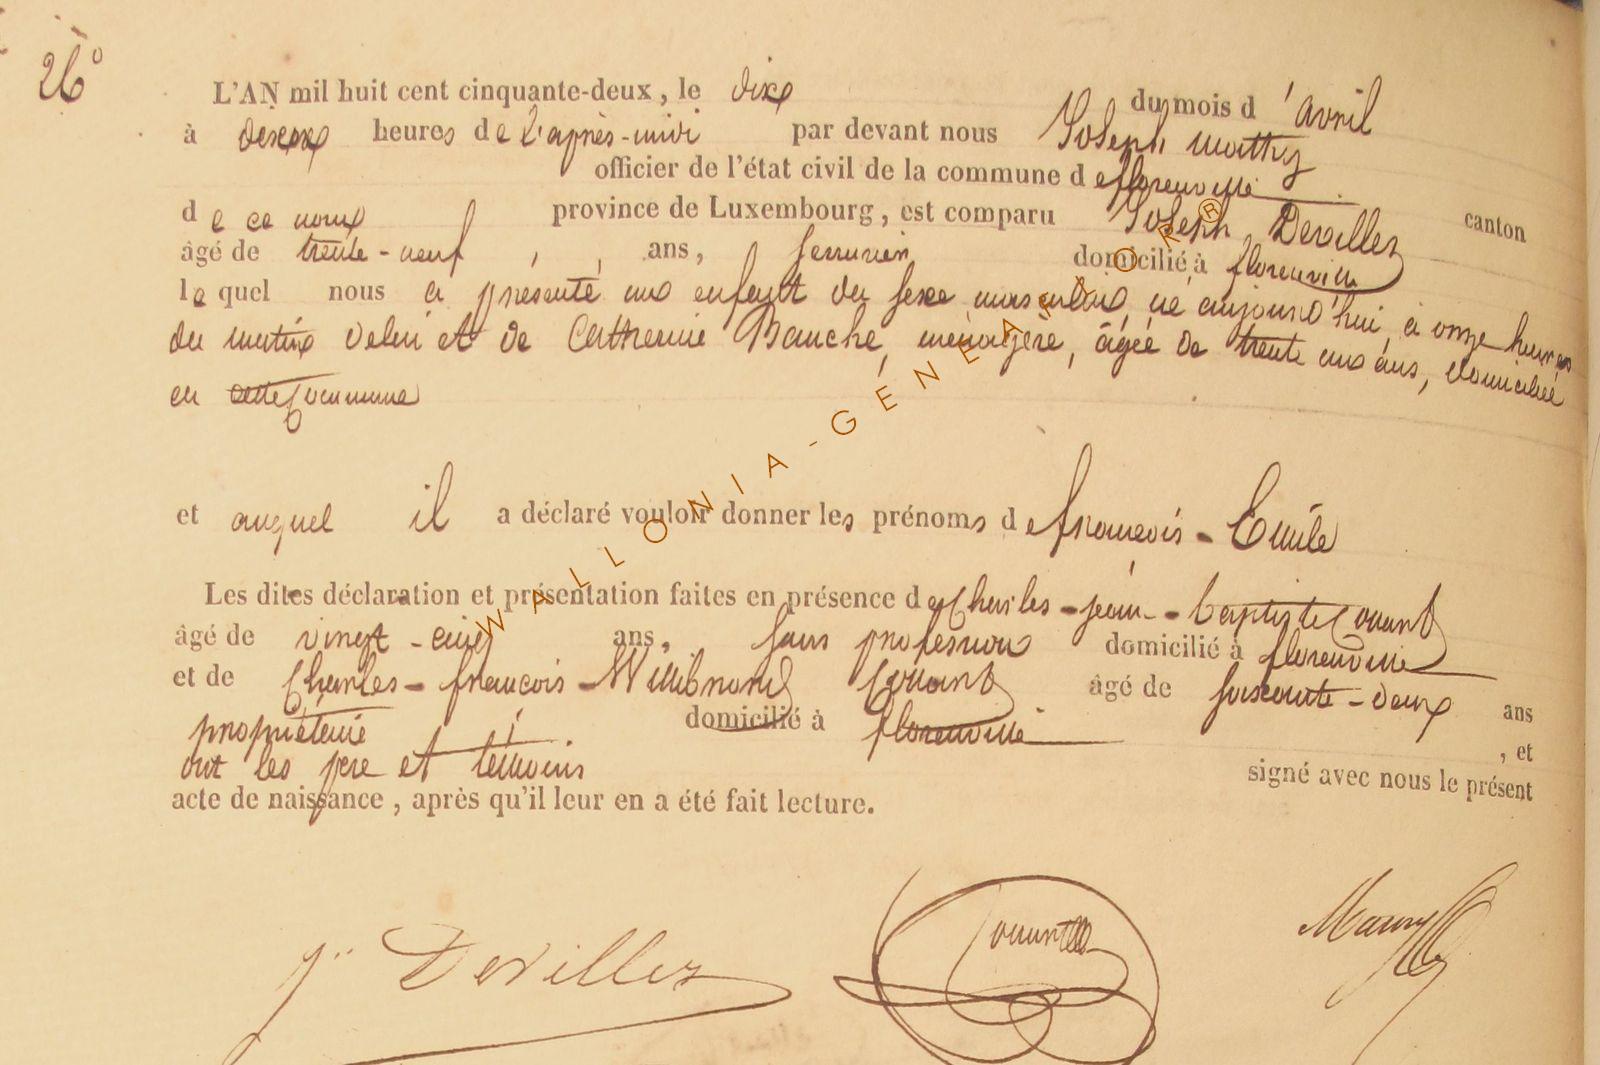 26°
L'AN mil huit cent cinquante-deux, le dix du mois d'avril
à deux heures de l'après-midi par devant nous Joseph Mathy
officier de l'état civil de la commune de florenville canton
de ce nom province de Luxembourg, est comparu Joseph Devillez
âgé de trente-neuf ans, serrurier domicilié à florenville
lequel nous a présenté un enfant du sexe masculin, né aujourd'hui, à onze heures
du matin de lui et de Catherine Bauche, ménagère, âgée de trente un ans, domiciliée
en cette Commune
et auquel il a déclaré vouloir donner les prénoms de françois-Emile
Les dites déclaration et présentation faites en présence de Charles-jean-baptiste Conard
âgé de vingt-cinq ans, sans profession domicilié à florenville
et de Charles-françois-Willibrord Conard âgé de soixante-deux ans
propriétaire domicilié à florenville, et
ont les père et témoins signé avec nous le présent
acte de naissance, après qu'il leur en a été fait lecture.
J. Devillez
WALLONIA-GENEALOR®